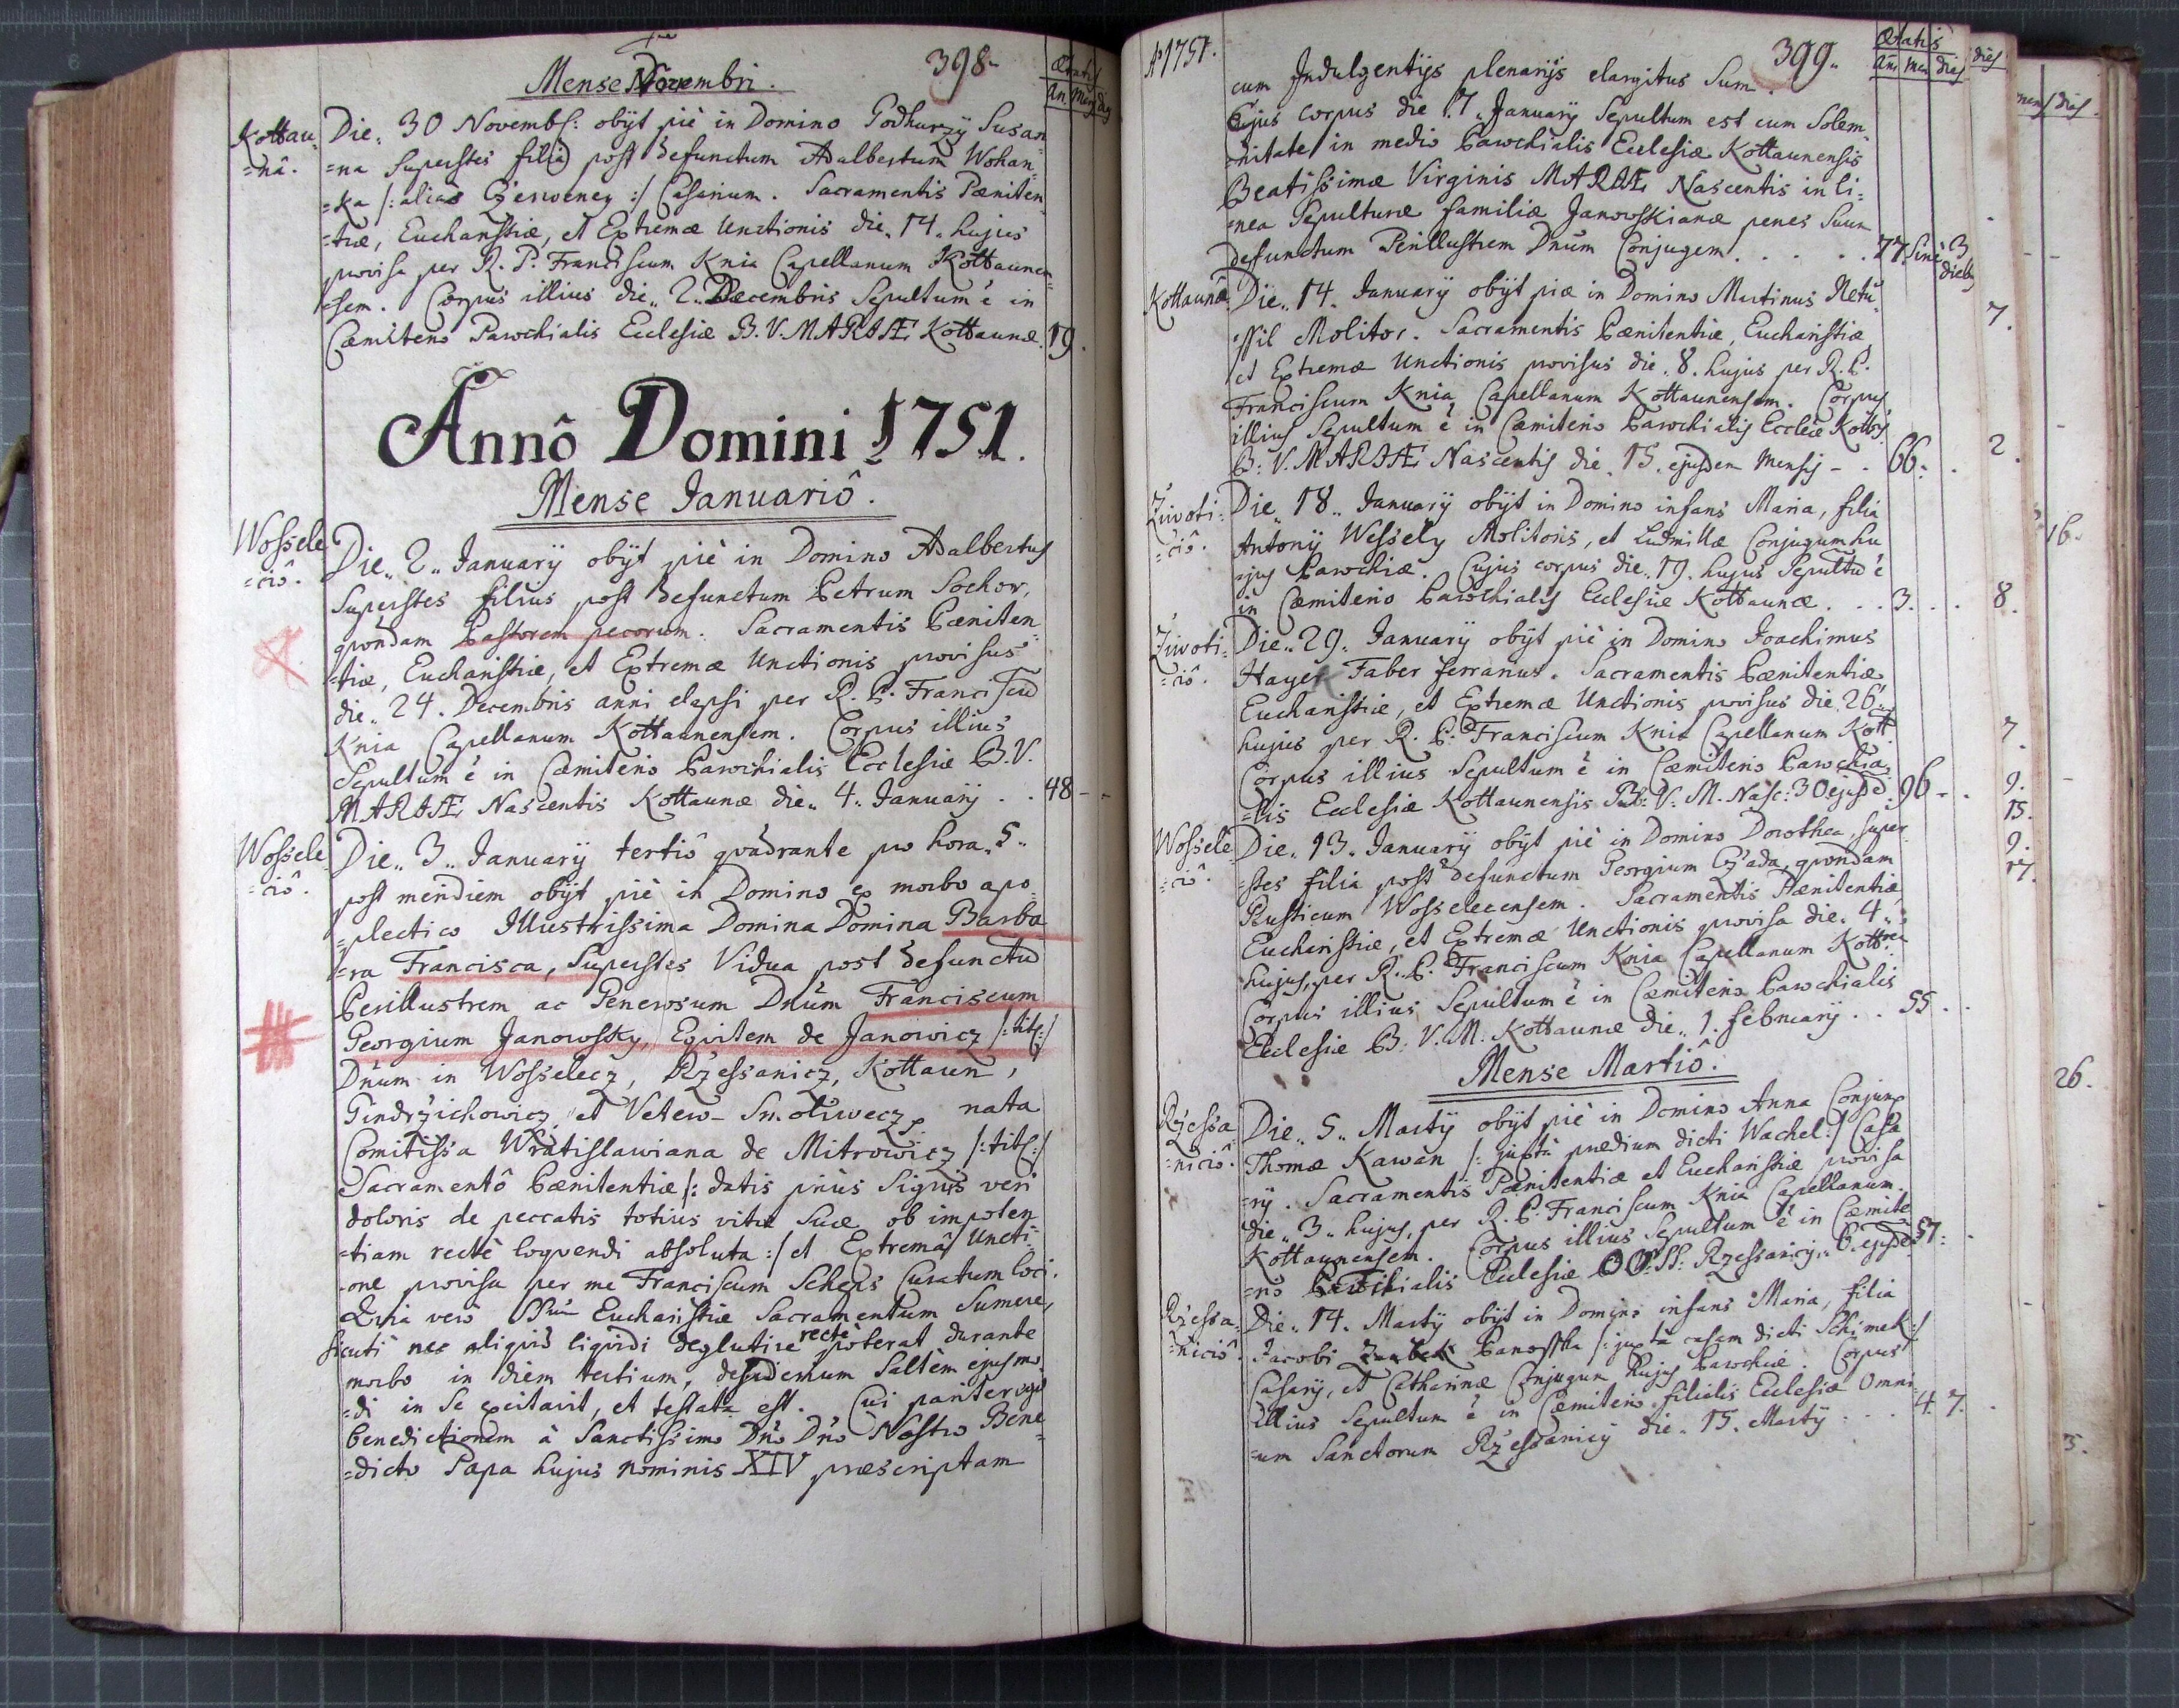 398.
Mense Novembri.
Ætatis
An Mens dies
Kottau=
=nâ.
Die. 30 Novembs: obÿt piè in Domino Podhurzÿ Susan=
=na Superstes filia post defunctum Adalbertum Wohan=
=ka /: alias Czerweney :/ Casarium. Sacramentis Pæniten=
=tiæ, Eucharistiæ, et Extremæ Unctionis die. 14. hujus
provisa per R. P. Franciscum Knia Capellanum Kottaunen=
=sem. Corpus illius die. 2. Decembris Sepultum ê in
Cæmiterio Parochialis Ecclesiæ B. V. MARIÆ Kottaunæ. 19.
Annô Domini 1751.
Mense Januariô.
Wossele
=ciô.
Die. 2. Januarÿ obÿt piè in Domino Adalbertus
Superstes filius post defunctum Petrum Sochor,
qvondam Pastorem pecorum. Sacramentis Pæniten=
=tiæ, Eucharistiæ, et Extremæ Unctionis provisus
die. 24. Decembris anni elapsi per R. P. Franciscũ
Knia Capellanum Kottaunensem. Corpus illius
Sepultum ê in Cæmiterio Parochialis Ecclesiæ B. V.
MARIÆ Nascentis Kottaunæ die. 4. Januarÿ . . 48 - -
Wossele
=ciô.
Die. 3. Januarÿ tertiô qvadrante pro hora. 5.
post meridiem obÿt piè in Domino ex morbo apo=
=plectico Illustrissima Domina Domina Barba
=ra Francisca, Superstes Vidua post defunctũ
Perillustrem ac Generosum Dnum Franciscum
Georgium Janowsky, Eqvitem de Janowicz /: tit: :/
Dnum in Wosselecz, Rzessanicz, Kottaun,
Gindrzichowicz, et Vetero-Smoliwecz, nata
Comitissa Wratislawiana de Mitrowicz /: tit: :/
Sacramentô Pænitentiæ /: datis priùs Signis veri
doloris de peccatis totius vitæ Suæ ob impoten
=tiam rectè loqvendi absoluta :/ et Extremâ Uncti=
=one provisa per me Franciscum Schens Curatum loci.
Qvia verò SSum Eucharistiæ Sacramentum Sumere,
sicuti nec aliqvid liqvidi deglutire rectè poterat durante
morbo in diem tertium, desiderium Saltèm ejusmo
=di in Se excitavit, et testata est. Cui pariter
benedictionem à Sanctissimo Dno Dno Nostro Bene=
=dicto Papa hujus nominis XIV præscriptam
Aº 1751.
399.
Ætatis
An Men dies
cum Indulgentÿs plenarÿs elargitus Sum.
Cujus corpus die 7. Januarÿ Sepultum est cum Solem=
=nitate in medio Parochialis Ecclesiæ Kottaunensis
Beatissimæ Virginis MARIÆ Nascentis in li=
=nea Sepulturæ familiæ Janowskianæ penes Suum
defunctum Perillustrem Dnum Conjugem . . . . . 77. Sinè 3 dieb9
Kottaunæ
Die. 14. Januarÿ obÿt piæ in Domino Martinus Netu=
=ssil Molitor. Sacramentis Pænitentiæ, Eucharistiæ,
et Extremæ Unctionis provisus die. 8. hujus per R. P.
Franciscum Knia Capellanum Kottaunensem. Corpus
illius Sepultum ê in Cæmiterio Parochialis Eccleiæ Kottis
B: V. MARIÆ Nascentis die. 15. ejusdem Mensis - . 66.
Ziwoti=
=ciô.
Die 18. Januarÿ obÿt in Domino infans Maria, filia
Antonÿ Wessely Molitoris, et Ludmillæ Conjugum hu
=jus Parochiæ. Cujus corpus die. 19. hujus Sepultũ ê
in Cæmiterio Parochialis Ecclesiæ Kottaunæ . . . 3. . .
Ziwoti=
=ciô.
Die. 29. Januarÿ obÿt piè in Domino Joachimus
Hayek Faber ferrarius. Sacramentis Pænitentiæ
Eucharistiæ, et Extremæ Unctionis provisus die 26.
hujus per R. P. Franciscum Knia Capellanum Kott.
Corpus illius Sepultum ê in Cæmiterio Parochia=
=lis Ecclesiæ Kottaunensis B: V. M. Nasc: 30 ejusd. 96 - .
Wossele
=ciô.
Die. 13. Januarÿ obÿt piè in Domino Dorothea, super
=stes filia post defunctum Georgium Czada, qvondam
Rusticum Wosselecensem. Sacramentis Pænitentiæ,
Eucharistiæ, et Extremæ Unctionis provisa die. 4.
hujus, per R. P. Franciscum Knia Capellanum Kott.
Corpus illius Sepultum ê in Cæmiterio Parochialis
Ecclesiæ B. V. M. Kottaunæ die. 1. februarÿ . . 55 . .
Mense Martiô.
Rzessa
=niciô.
Die. 5. Martÿ obÿt piè in Domino Anna Conjunx
Thomæ Kawan /: juxtà prædium dicti Wachel :/ Casa
=rÿ. Sacramentis Pænitentiæ et Eucharistiæ provisa
die. 3. hujus, per R. P. Franciscum Knia Capellanum
Kottaunensem. Corpus illius Sepultum ê in Cæmite
=rio Parochialis Ecclesiæ OO. SS. Rzessanicÿ. 6. ejusdẽ 57.
Rzessa=
=niciô.
Die. 14. Martÿ obÿt in Domino infans Maria, filia
Jacobi Panosska /: juxtà casam dicti Schimek :/
Casarÿ, et Catharinæ Conjugum hujus Parochiæ. Corpus
illius Sepultum ê in Cæmiterio filialis Ecclesiæ Omni
=um Sanctorum Rzessanicÿ die. 15. Martÿ . . . 4. 7. .
dies
7.
2.
8.
7.
9.
15.
9.
17.
mens dies
16.
26.
3.